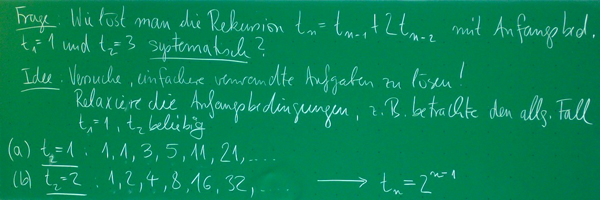 Frage: Wie löst man die Rekursion tₙ = tₙ₋₁ + 2tₙ₋₂ mit Anfangsbed.
t₁=1 und t₂=3 systematisch?
Idee: Versuche, einfachere verwandte Aufgaben zu lösen!
Relaxiere die Anfangsbedingungen, z.B. betrachte den allg. Fall
t₁=1, t₂ beliebig
(a) t₂=1 : 1, 1, 3, 5, 11, 21, ....
(b) t₂=2 : 1, 2, 4, 8, 16, 32, .... → tₙ = 2ⁿ⁻¹